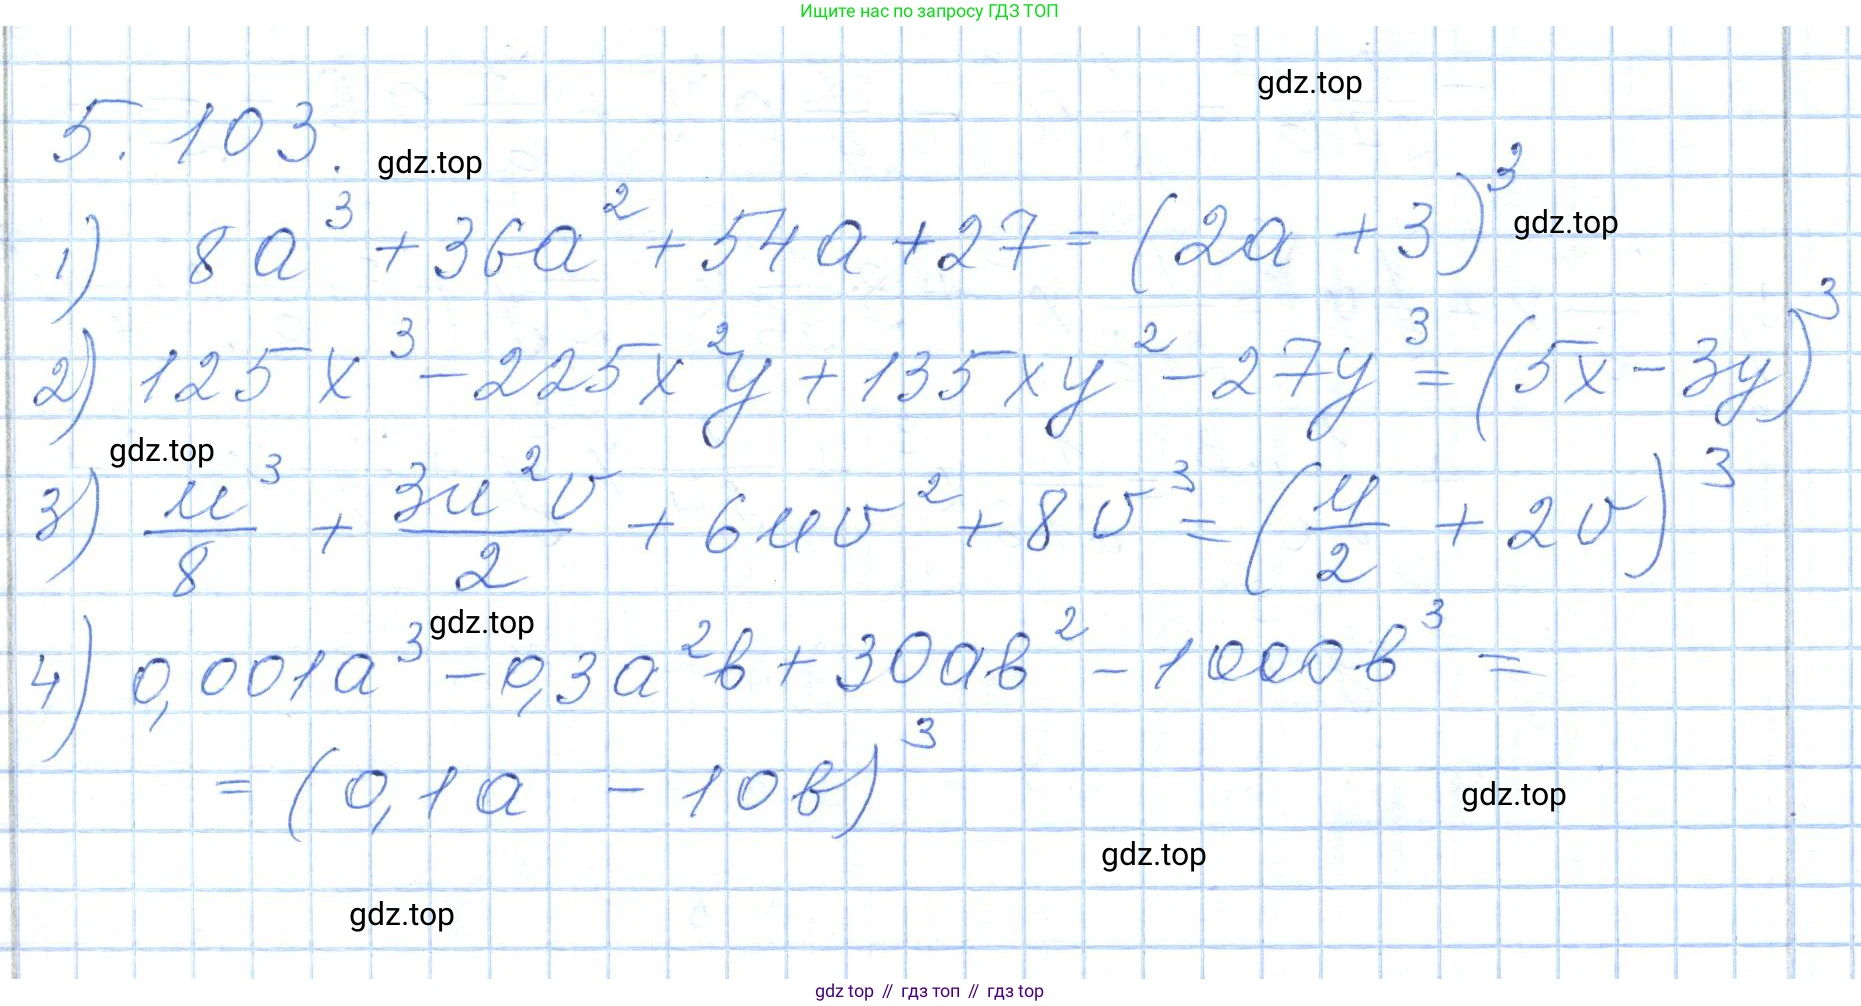 Ищите нас по запросу ГДЗ ТОП
gdz.top
5.103.
gdz.top
1) 8a³ + 36a² + 54a + 27 = (2a + 3)³
gdz.top
2) 125x³ - 225x²y + 135xy² - 27y³ = (5x - 3y)³
gdz.top
3) u³/8 + 3u²v/2 + 6uv² + 8v³ = (u/2 + 2v)³
gdz.top
4) 0,001a³ - 0,3a²b + 30ab² - 1000b³ =
= (0,1a - 10b)³
gdz.top
gdz.top
gdz.top
gdz top // гдз топ // gdz top